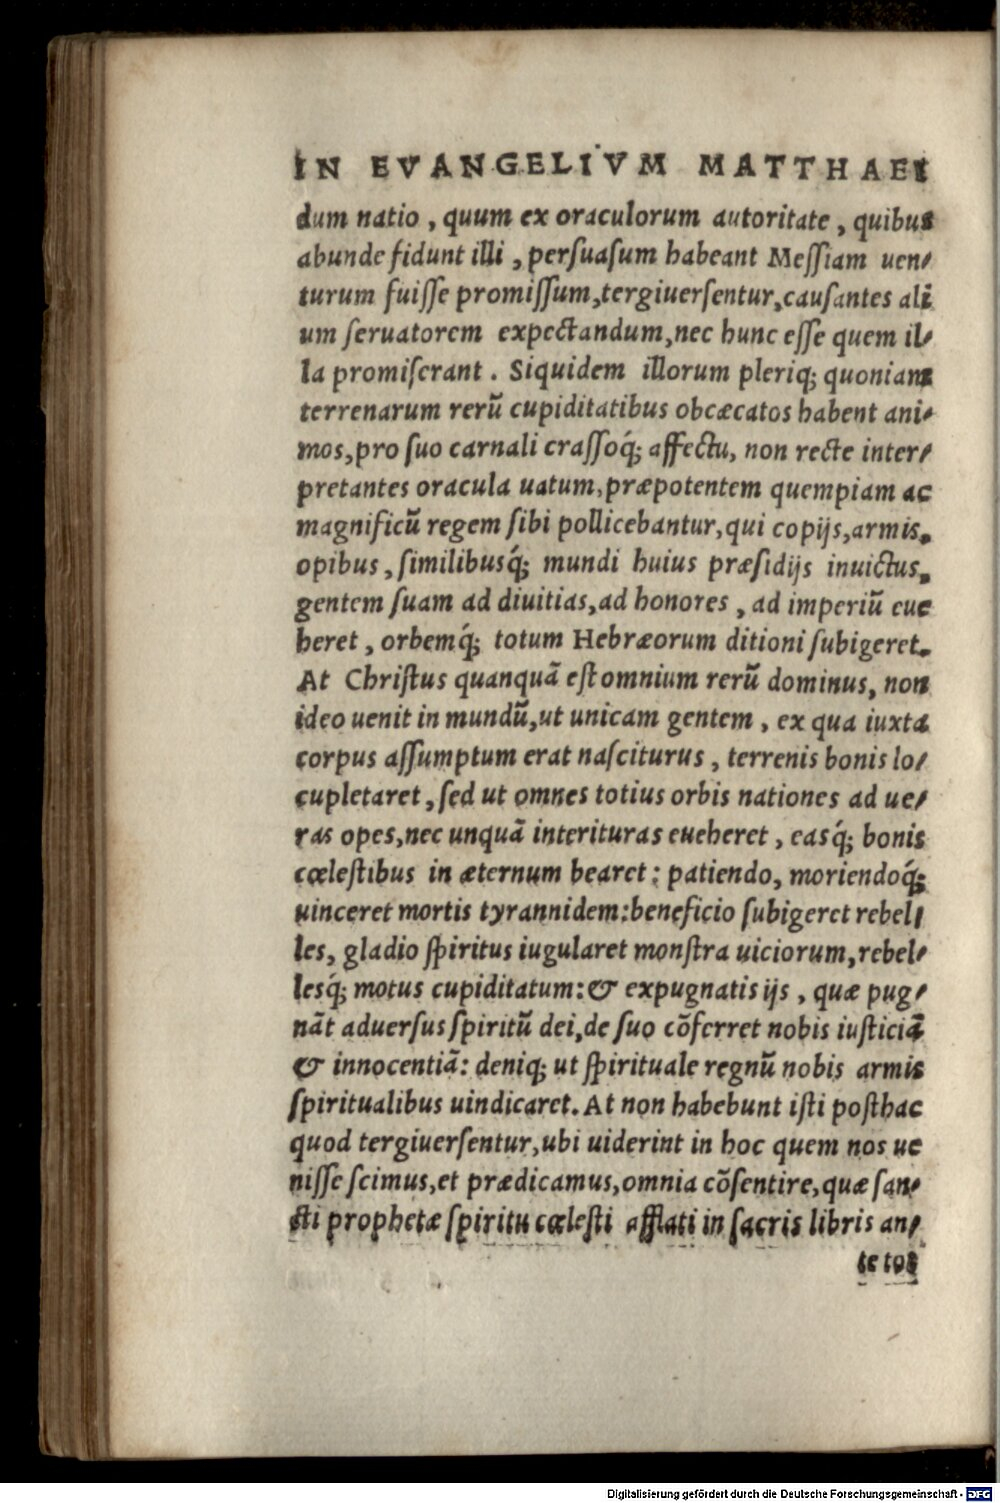 IN EVANGELIVM MATTHAEI
dum natio, quum ex oraculorum autoritate, quibus
abunde fidunt illi, persuasum habeant Messiam uen-
turum fuisse promissum, tergiuersentur, causantes ali
um seruatorem expectandum, nec hunc esse quem il-
la promiserant. Siquidem illorum pleriq; quoniam
terrenarum rerū cupiditatibus obcæcatos habent ani-
mos, pro suo carnali crassoq́; affectu, non recte inter-
pretantes oracula uatum, præpotentem quempiam ac
magnificū regem sibi pollicebantur, qui copijs, armis,
opibus, similibusq́; mundi huius præsidijs inuictus,
gentem suam ad diuitias, ad honores, ad imperiū eue
heret, orbemq́; totum Hebræorum ditioni subigeret.
At Christus quanquā est omnium rerū dominus, non
ideo uenit in mundū, ut unicam gentem, ex qua iuxta
corpus assumptum erat nasciturus, terrenis bonis lo-
cupletaret, sed ut omnes totius orbis nationes ad ue-
ras opes, nec unquā interituras eueheret, easq́; bonis
cœlestibus in æternum bearet: patiendo, moriendoq́;
uinceret mortis tyrannidem: beneficio subigeret rebel-
les, gladio spiritus iugularet monstra uiciorum, rebel-
lesq́; motus cupiditatum: & expugnatis ijs, quæ pug-
nāt aduersus spiritū dei, de suo cōferret nobis iusticiā
& innocentiā: deniq; ut spirituale regnū nobis armis
spiritualibus uindicaret. At non habebunt isti posthac
quod tergiuersentur, ubi uiderint in hoc quem nos ue
nisse scimus, et prædicamus, omnia cōsentire, quæ san-
cti prophetæ spiritu cœlesti afflati in sacris libris an-
te tot
Digitalisierung gefördert durch die Deutsche Forschungsgemeinschaft - DFG